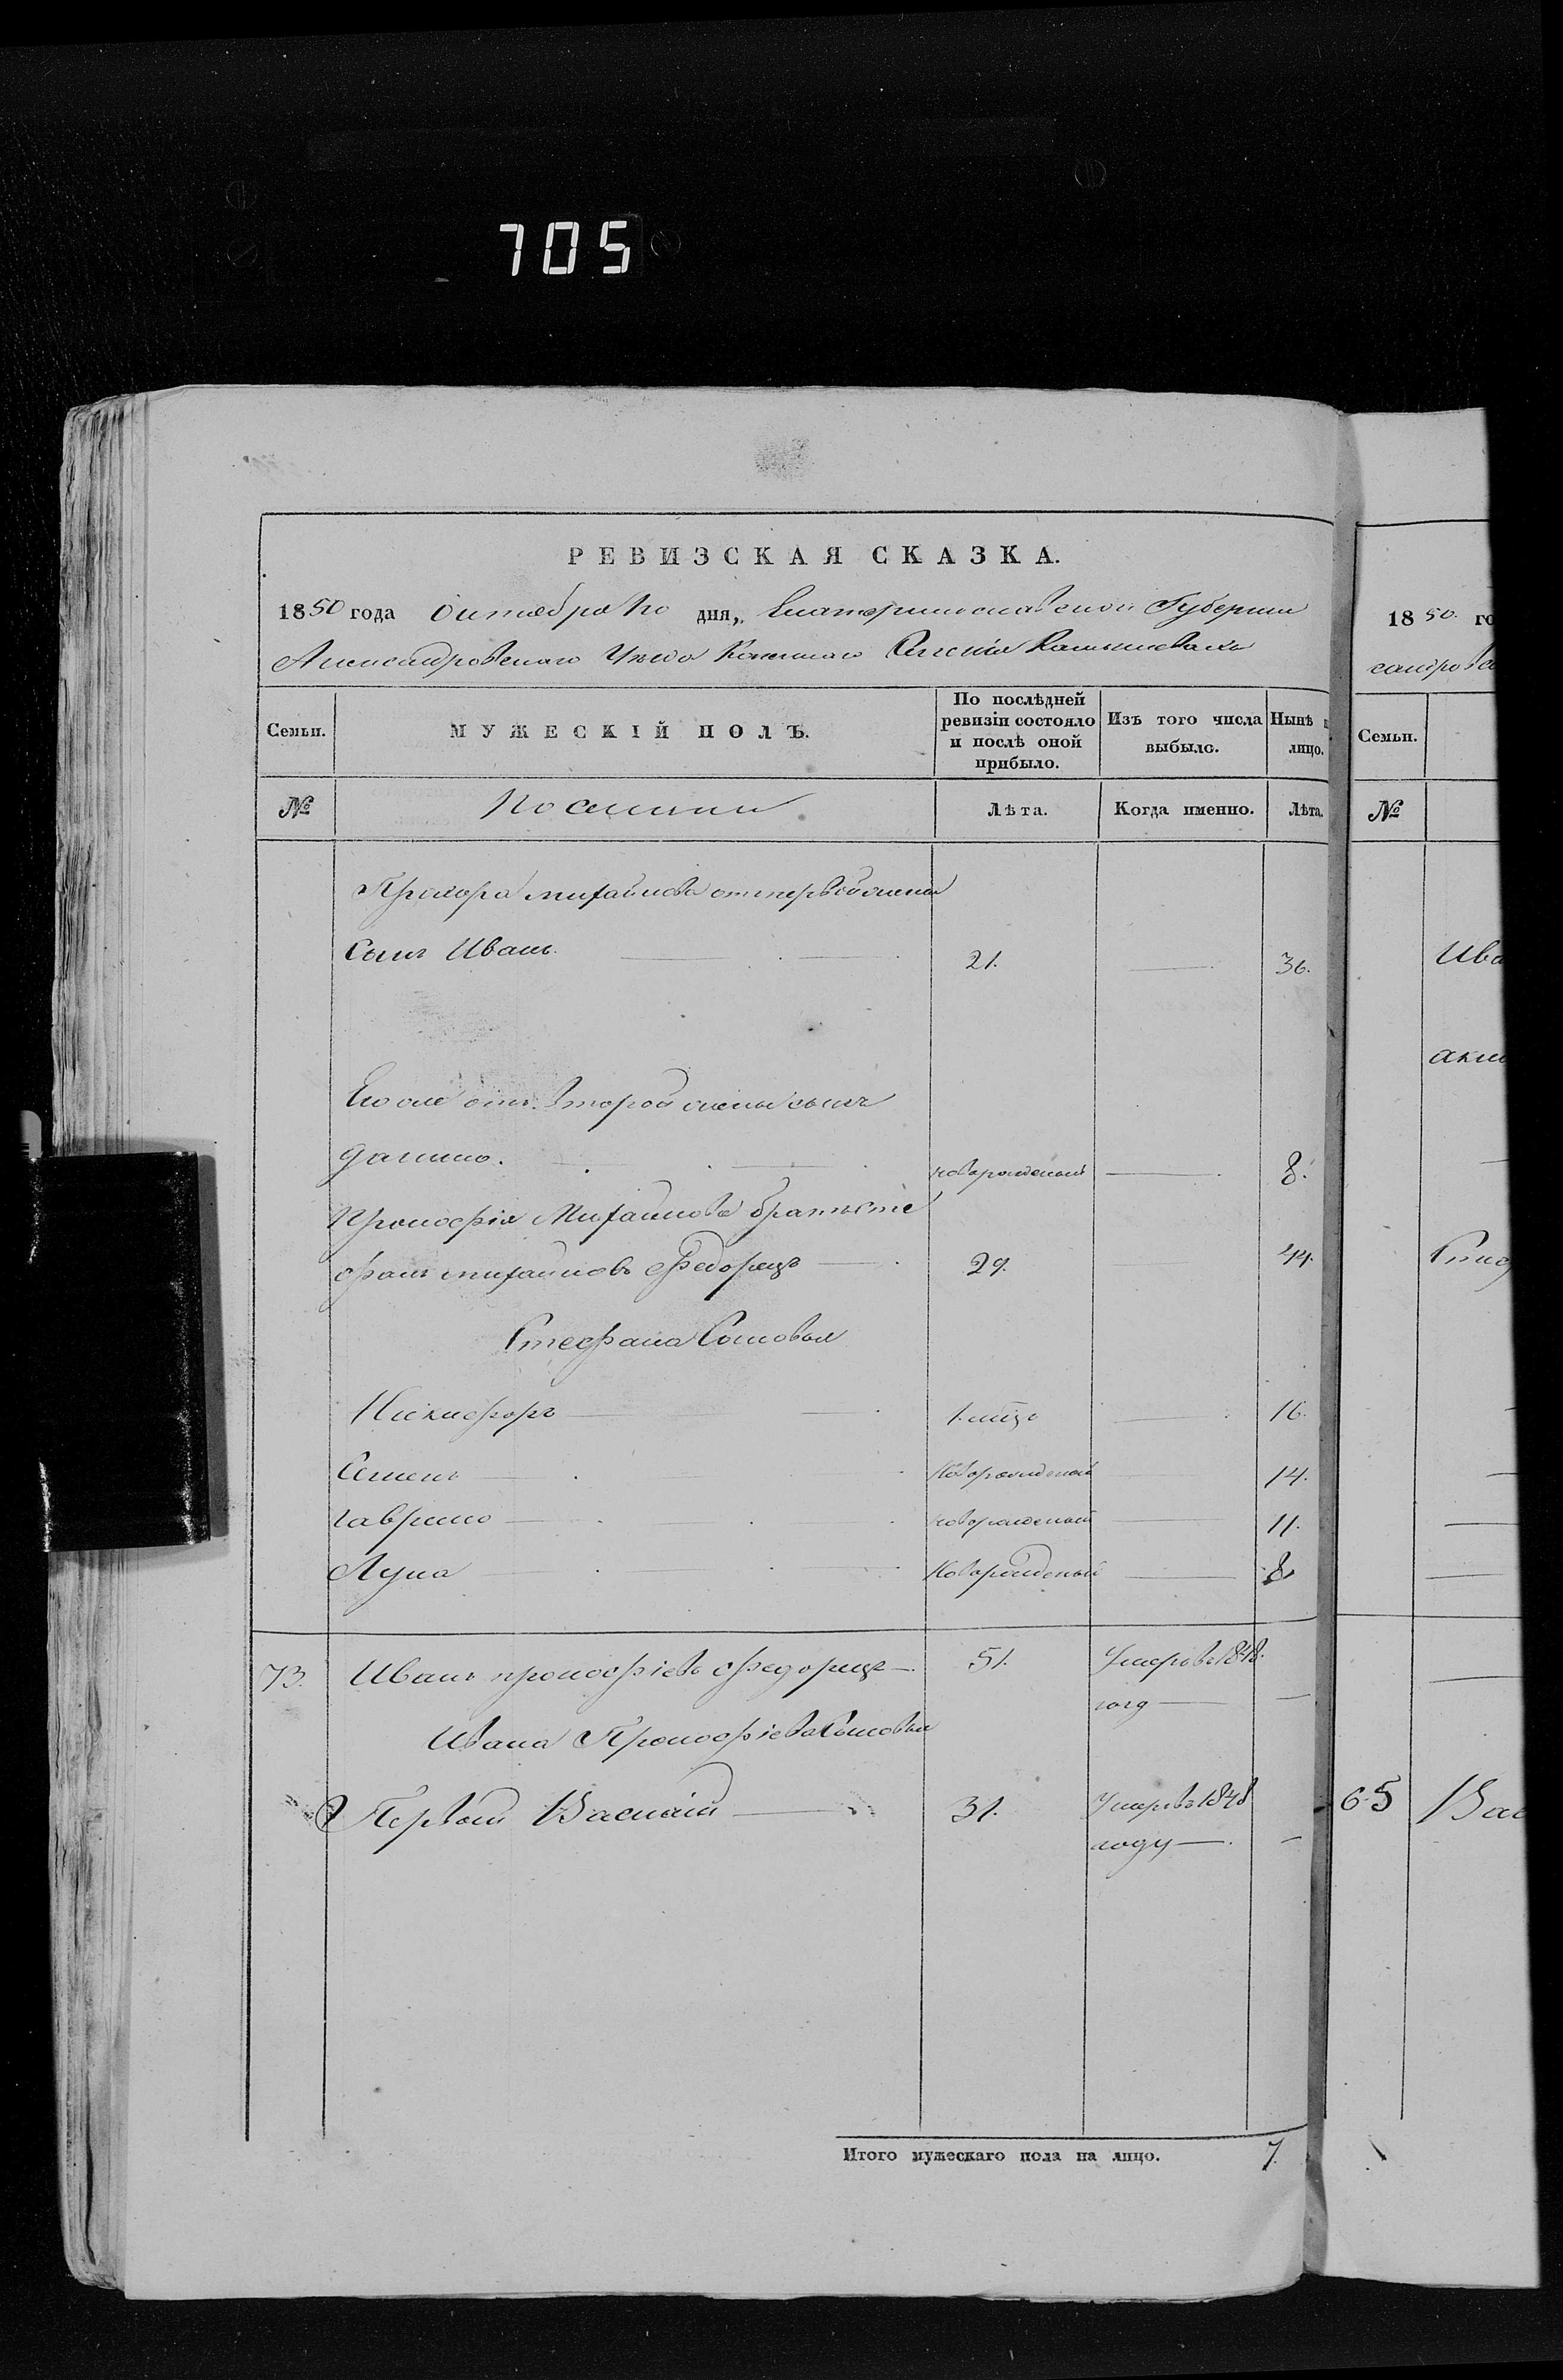 705
РЕВИЗСКАЯ СКАЗКА.
1850 года Октября 10 дня, Екатеринославской Губернии
Александровского Уезда Казенного Селенія
Семьи.
МУЖЕСКІЙ ПОЛЪ.
По послѣдней ревизіи состояло и послѣ оной прибыло.
Изъ того числа выбыло.
Нынѣ
лицо.
№
Лѣта.
Когда именно.
Лѣта.
Прохора Михайлова отпервой жены
Сынъ Иванъ. 21. 36.
Его же отъ второй жены сынъ
Данило. новорожденый 8.
Прокофія Михайлова братъ
Михайловъ Федорецъ 29. 44.
Стефана Сыновья
Никифоръ 1. 16.
Семенъ Новорожденый 14.
гаврило новорожденый 11.
Лука Новорожденый 8.
73. Иванъ прокофіевъ федорецъ 51. Умеръ въ 1848.
году
Ивана Прокофіева Сыновья
Первый Василій 31. Умеръ въ 1848
году
Итого мужескаго пола на лицо. 7.
1850. го
Семьи.
№
Ива
65 Вас